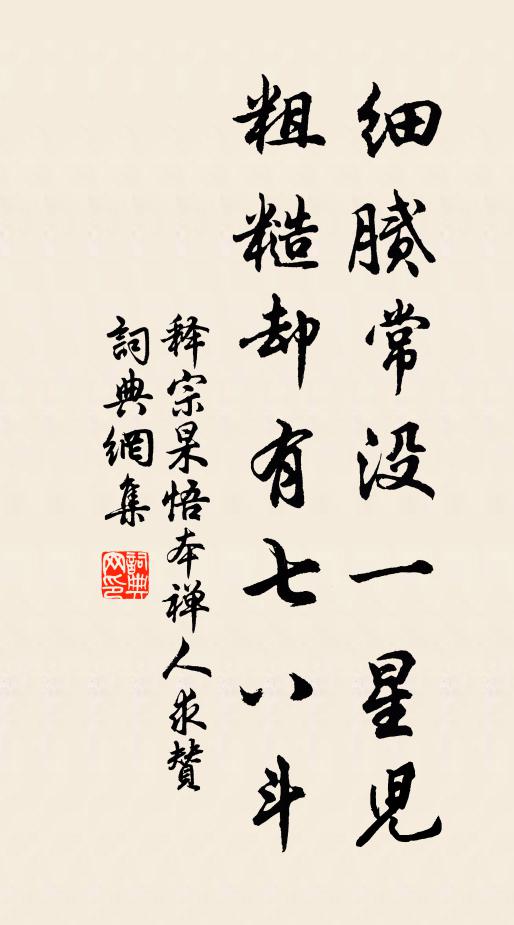 细腻常没一星児
粗糙却有七八斗
释宗杲悟本禅人求贊
詞典網集
詞典网印